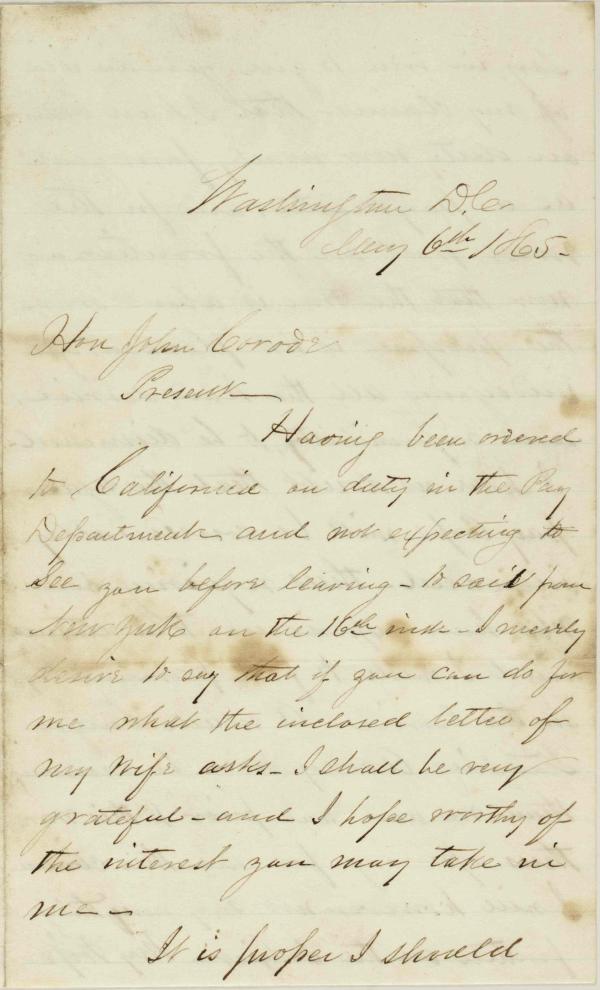 Washington D.C.
Jany 6th 1865-
Hon John Covode
Present
Having been ordered
to California on duty in the Pay
Department and not expecting to
see you before leaving - to sail from
New York on the 16th inst - I merely
desire to say that if you can do for
me what the inclosed letter of
my wife asks - I shall be very
grateful - and I hope worthy of
the interest you may take in
me -
It is proper I should